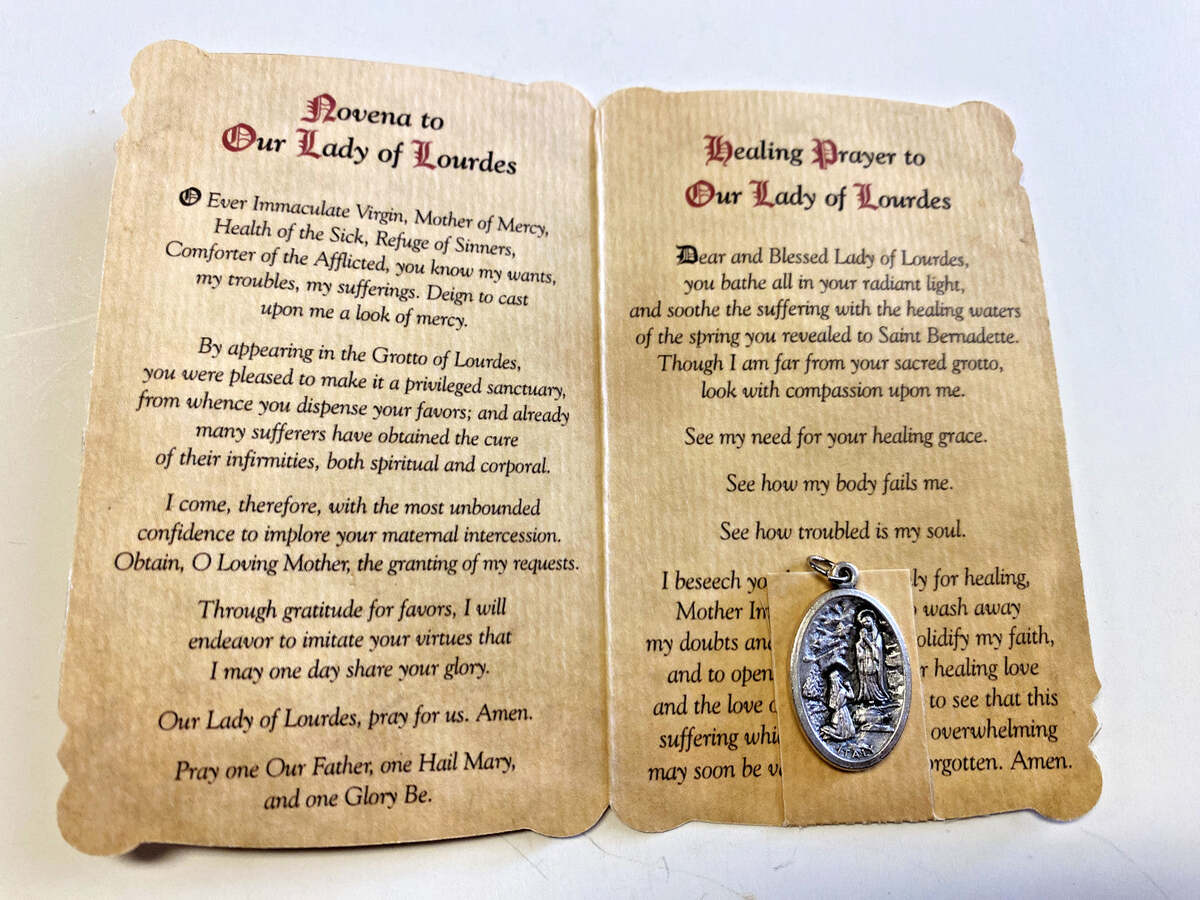 Novena to
Our Lady of Lourdes
O Ever Immaculate Virgin, Mother of Mercy,
Health of the Sick, Refuge of Sinners,
Comforter of the Afflicted, you know my wants,
my troubles, my sufferings. Deign to cast
upon me a look of mercy.
By appearing in the Grotto of Lourdes,
you were pleased to make it a privileged sanctuary,
from whence you dispense your favors; and already
many sufferers have obtained the cure
of their infirmities, both spiritual and corporal.
I come, therefore, with the most unbounded
confidence to implore your maternal intercession.
Obtain, O Loving Mother, the granting of my requests.
Through gratitude for favors, I will
endeavor to imitate your virtues that
I may one day share your glory.
Our Lady of Lourdes, pray for us. Amen.
Pray one Our Father, one Hail Mary,
and one Glory Be.
Healing Prayer to
Our Lady of Lourdes
Dear and Blessed Lady of Lourdes,
you bathe all in your radiant light,
and soothe the suffering with the healing waters
of the spring you revealed to Saint Bernadette.
Though I am far from your sacred grotto,
look with compassion upon me.
See my need for your healing grace.
See how my body fails me.
See how troubled is my soul.
I beseech for healing,
Mother wash away
my doubts and my faith,
and to open healing love
and the love to see that this
suffering overwhelming
may soon be Amen.
ITALY